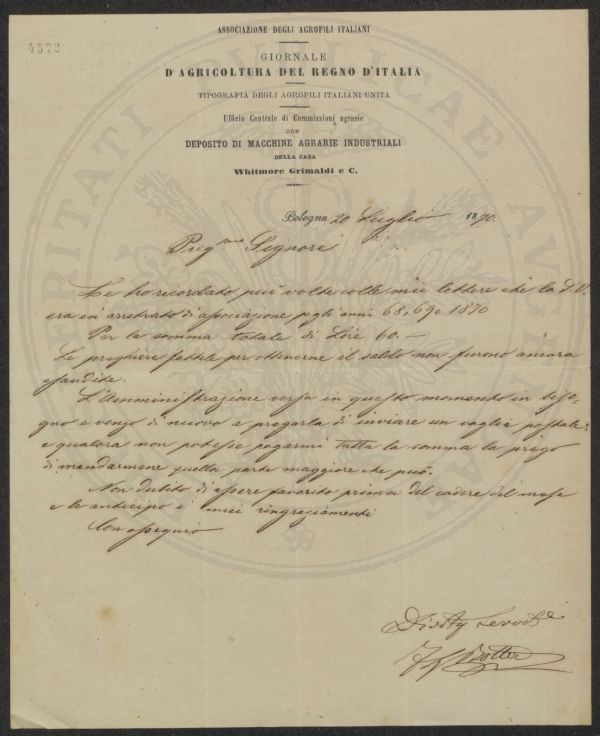 4572
ASSOCIAZIONE DEGLI AGROFILI ITALIANI
GIORNALE
D'AGRICOLTURA DEL REGNO D'ITALIA
TIPOGRAFIA DEGLI AGROFILI ITALIANI UNITA
Ufficio Centrale di Commissioni agrarie
CON
DEPOSITO DI MACCHINE AGRARIE INDUSTRIALI
DELLA CASA
Whitmore Grimaldi e C.
Bologna 20 Luglio 1870
Preg.mo Signore
Le ho ricordato più volte colle mie lettere che la S.V.
era in arretrato di associazione pegli anni 68, 69 e 1870
Per la somma totale di Lire 60.—
Le preghiere fattele per ottenerne il saldo non furono ancora
esaudite.
L'Amministrazione versa in questo momento in biso-
gno e vengo di nuovo a pregarla di inviare un vaglia postale:
e qualora non potesse pagarmi tutta la somma la prego
di mandarmene quella parte maggiore che può.
Non dubito di essere favorito prima del cadere del mese
e le anticipo i miei ringraziamenti
Con ossequio
Botter